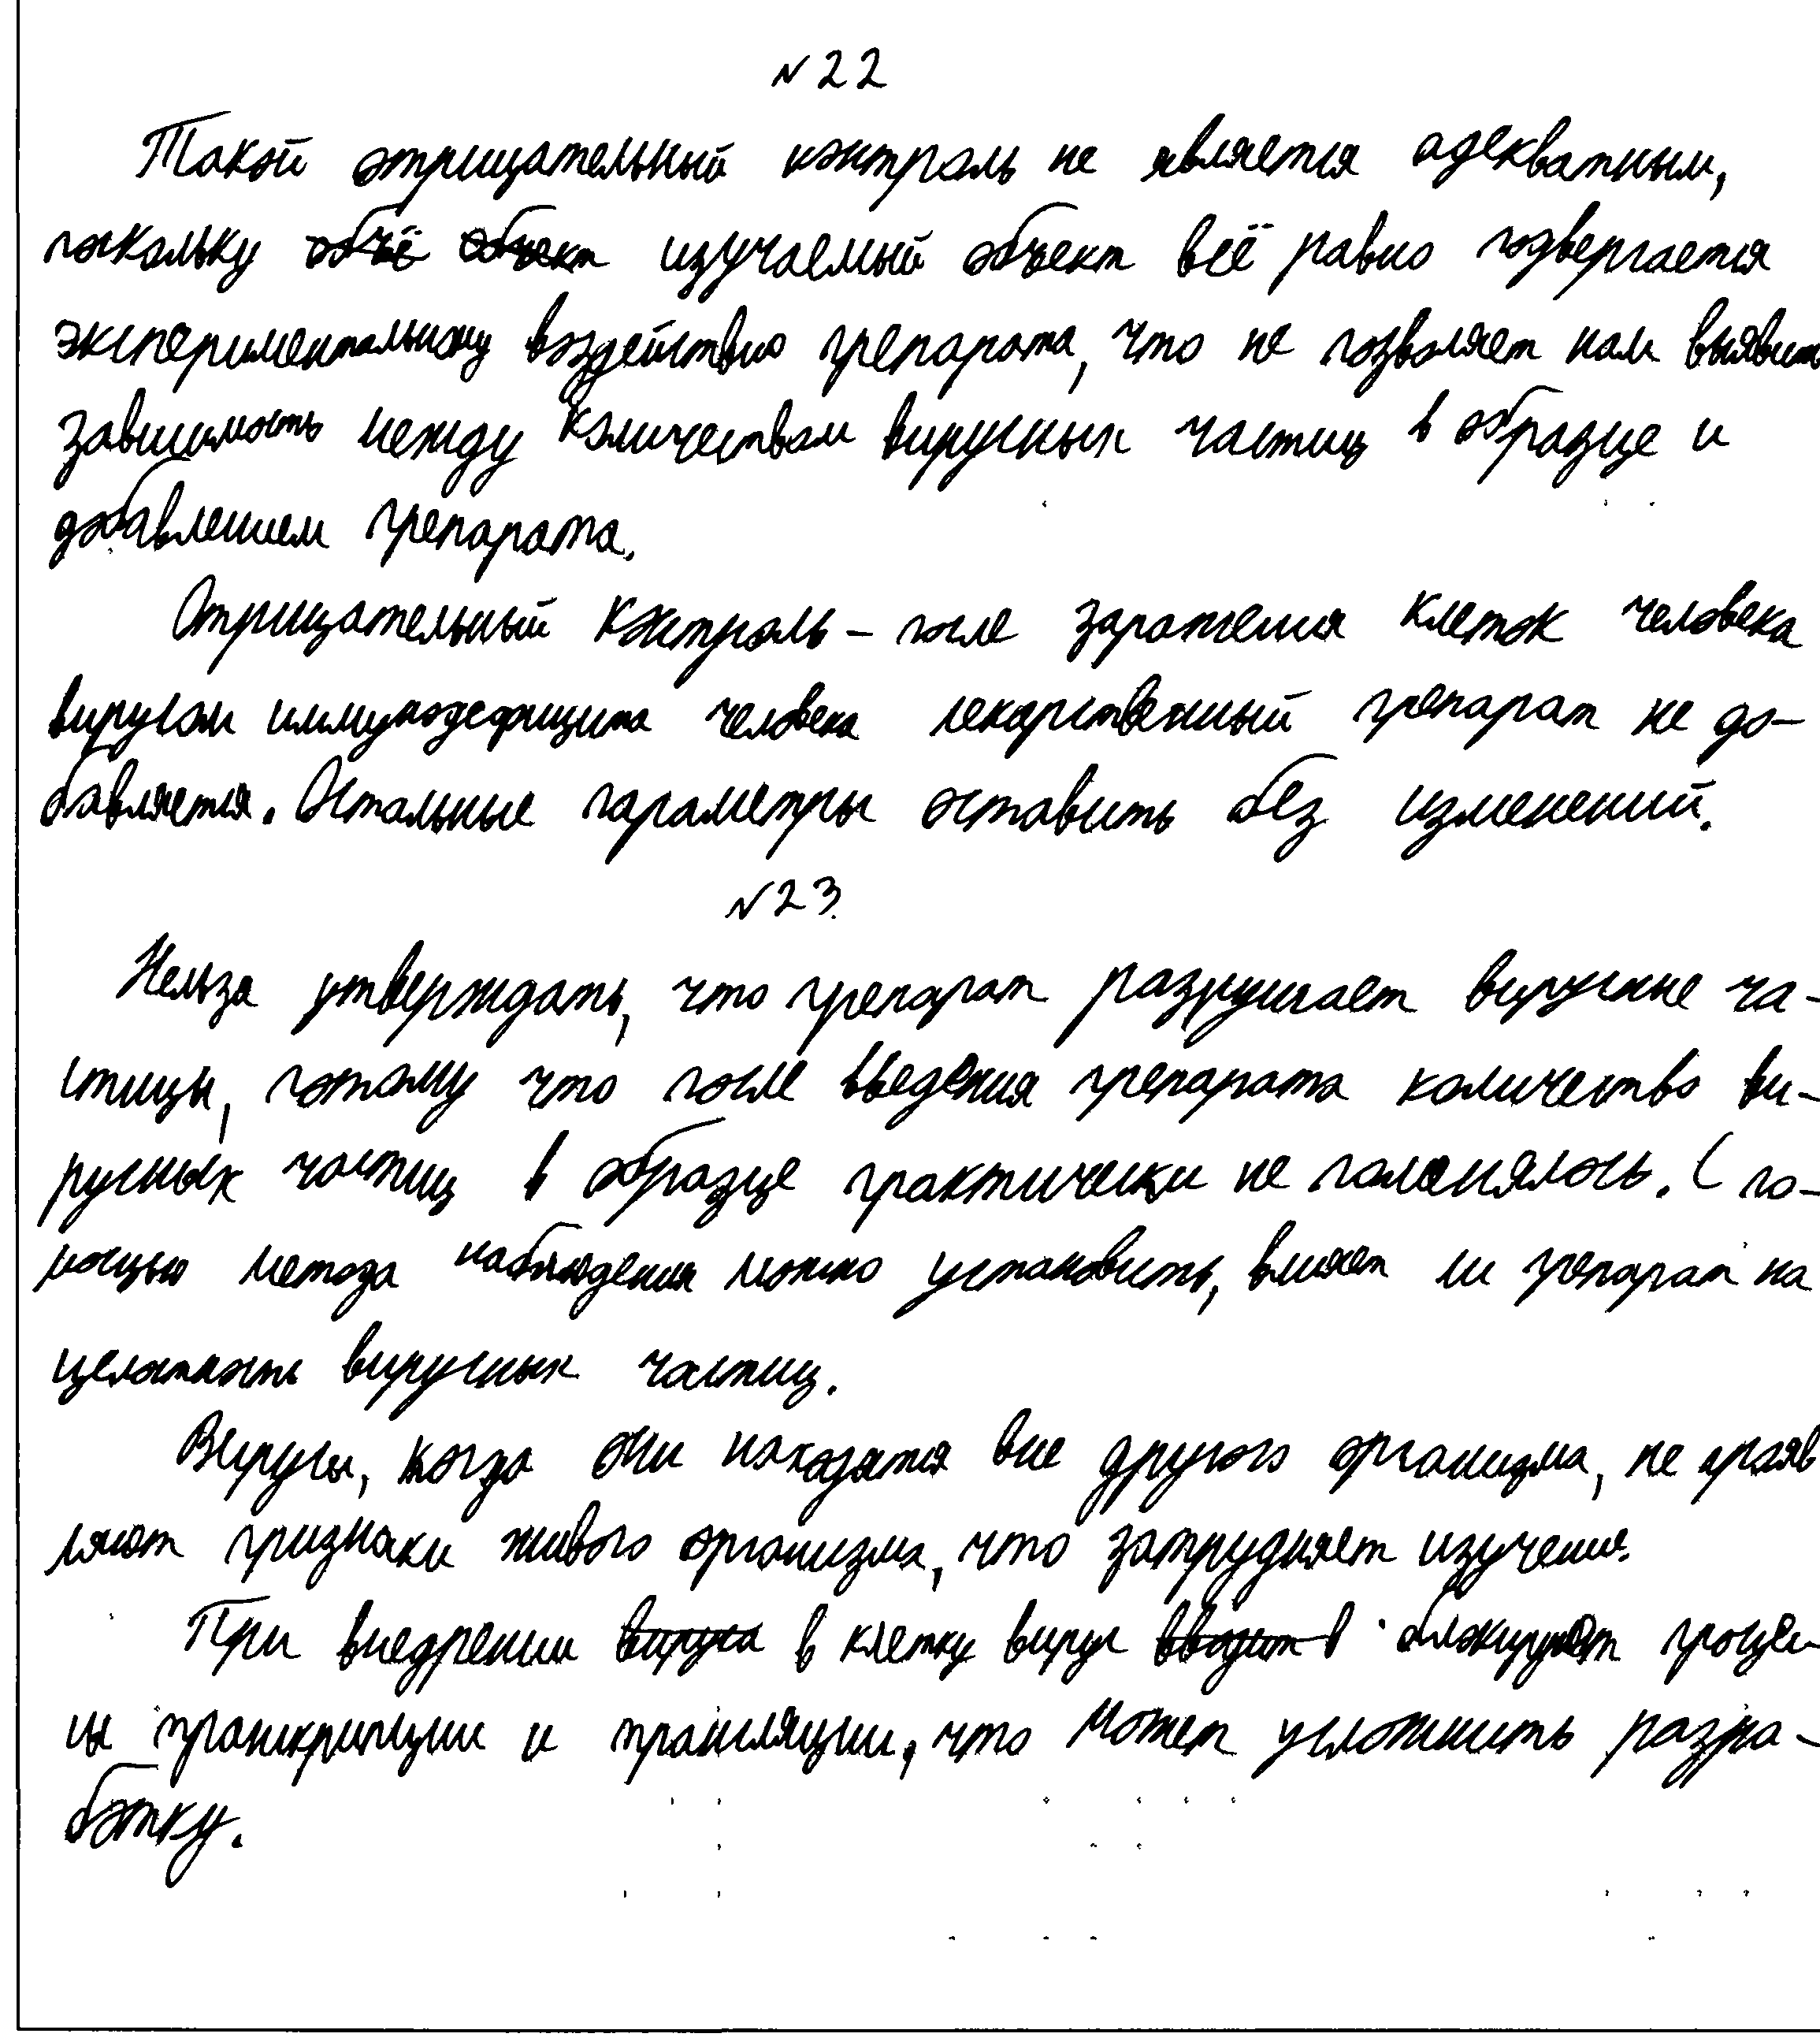 №22
Такой отрицательный контроль не является адекватным,
поскольку объё объект изучаемый объект всё равно подвергается
экспериментальному воздействию препарата, что не позволяет нам выявить
зависимость между количеством вирусных частиц в образце и
добавлением препарата.
Отрицательный контроль – после заражения клеток человека
вирусом иммунодефицита человека лекарственный препарат не до-
бавляется. Остальные параметры оставить без изменений.
№23.
Нельзя утверждать, что препарат разрушает вирусные ча-
стицы, потому что после введения препарата количество ви-
русных частиц в образце практически не поменялось. С по-
мощью метода наблюдения можно установить, влияет ли препарат на
целостность вирусных частиц.
Вирусы, когда они находятся вне другого организма, не прояв
ляют признаки живого организма, что затрудняет изучение.
При внедрении вируса в клетку вирус вводит в блокируют процес-
сы транскрипции и трансляции, что может усложнить разра-
ботку.